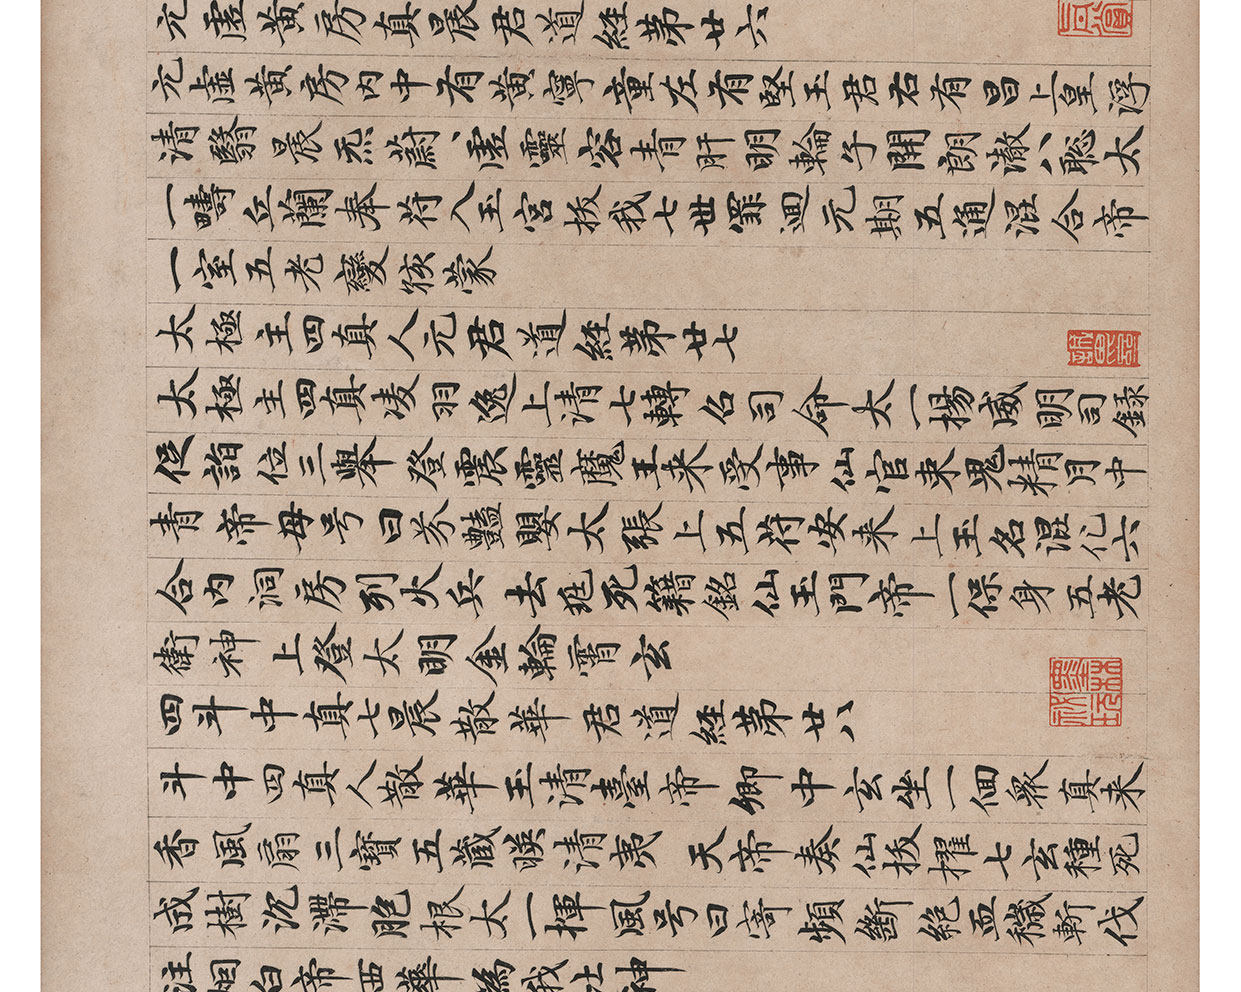 元虛黃房真晨君道經第廿六
元虛黃房內中有黃寧童左有堅玉君右有昌上皇浮
清翳晨炁蔚虛靈容青肝明輪子開朗澈八聡太
一疇丘蘭奉符入玉宮拔我七世罪迴元期五通混合帝
一室五老變孩蒙
太極主四真人元君道經第廿七
太極主四真凌羽逸上清七轉名司命太一揚威明司錄
促詣位三舉登震靈魔王来受事仙官束鬼精月中
青帝母号曰芬豔嬰太張上五符安来上玉名混化六
合內洞房引火兵去死籍銘仙玉門帝一保身五老
衛神上登太明金輪霄玄
四斗中真七晨散華君道經第廿八
斗中四真人散華玉清臺帝卿中玄坐一個眾真来
香風扇三寶五藏暎清夷天帝奏仙拔擢七玄種死
成樹沉滯胞根太一揮風号曰寄頻斷絕血穢斬伐
注烟白帝西華為我社神